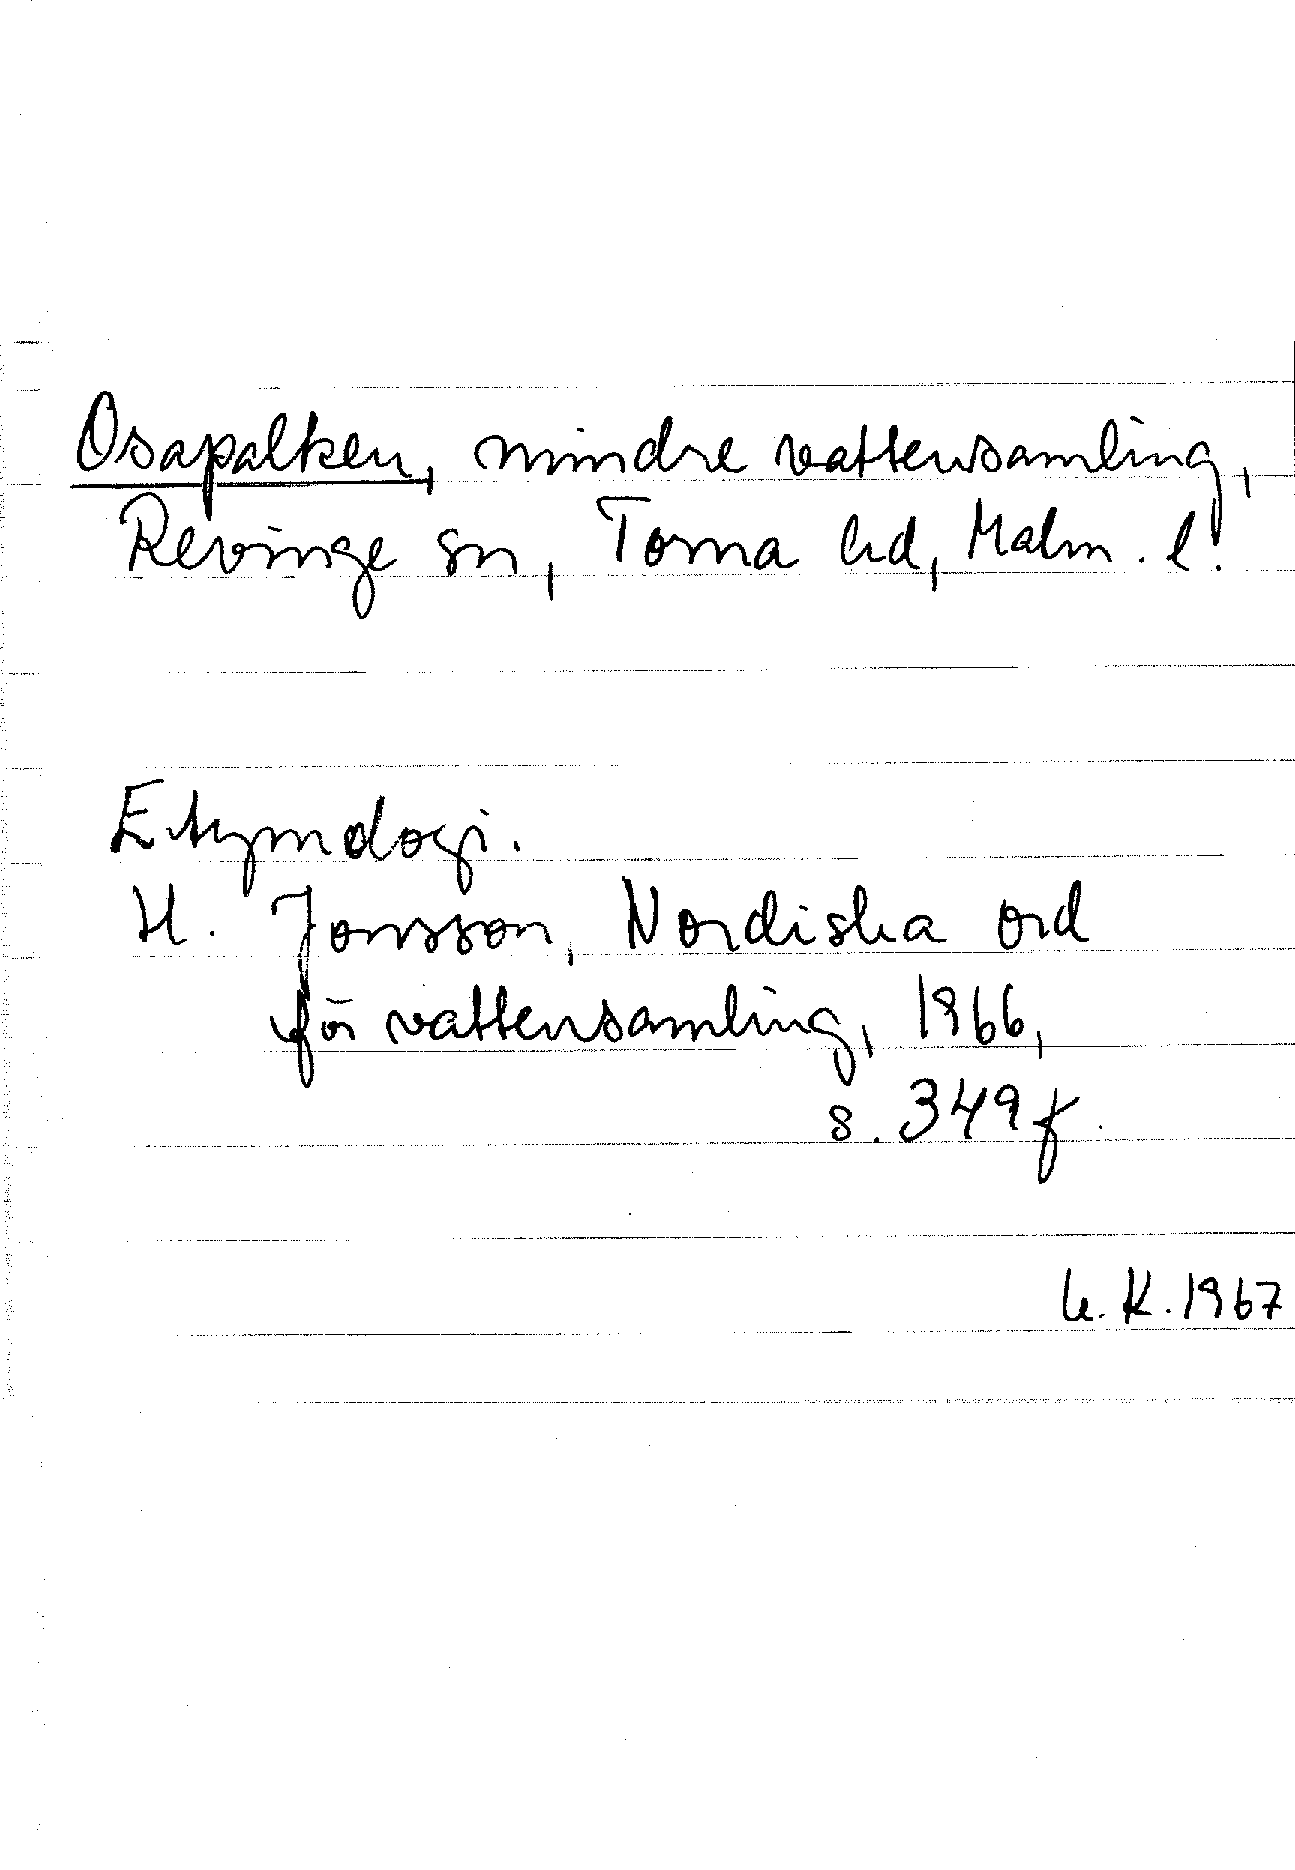 Osapalken, mindre vattensamling,
Revinge sn, Torna hd, Malm. l.
Etymologi.
H. Jonsson, Nordiska ord
för vattensamling, 1966,
s. 349 f.
U. K. 1967